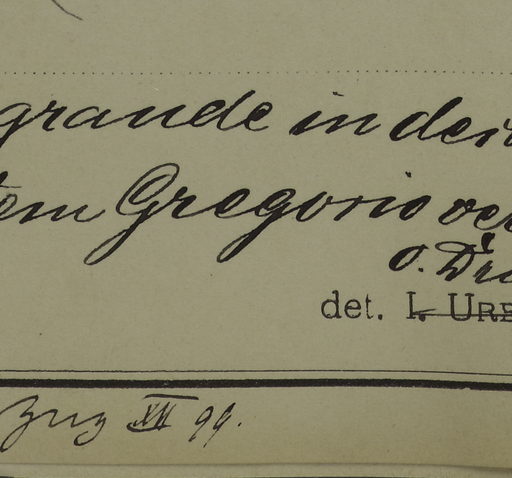 grande in der
tem Gregorio ver
O. Dr
det. I. URB
Aug XII 99.